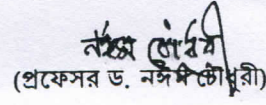 নঈম চৌধুরী
(প্রফেসর ড. নঈম চৌধুরী)